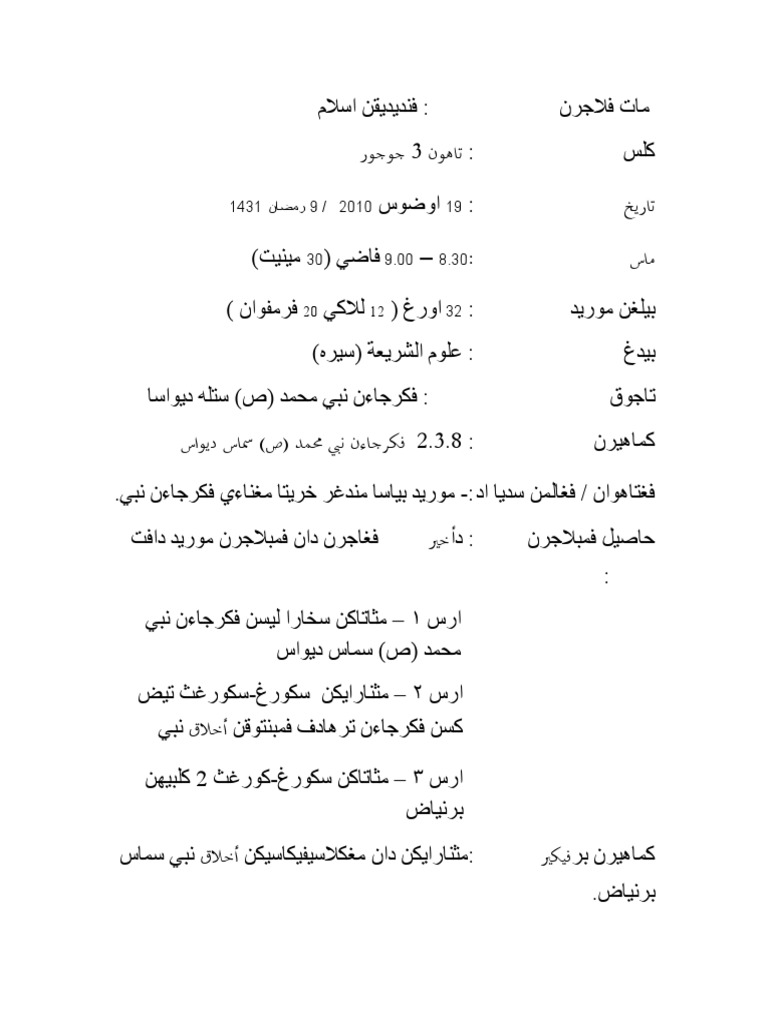 مات فلاجرن : فنديديقن اسلام
كلس : تاهون 3 جوجور
تاريخ : 19 اوضوس 2010 / 9 رمضان 1431
ماس :8.30 – 9.00 فاضي (30 مينيت)
بيلغن موريد : 32 اورغ ( 12 للاكي 20 فرمفوان )
بيدغ : علوم الشريعة (سيره)
تاجوق : فكرجاءن نبي محمد (ص) ستله ديواسا
كماهيرن : 2.3.8 فكرجاءن نبي محمد (ص) سماس ديواس
فغتاهوان / فغالمن سديا اد :- موريد بياسا مندغر خريتا مغناءي فكرجاءن نبي.
حاصيل فمبلاجرن : دأخير فغاجرن دان فمبلاجرن موريد دافت
:
ارس ١ – مثاتاكن سخارا ليسن فكرجاءن نبي
محمد (ص) سماس ديواس
ارس ٢ – مثنارايكن سكورغ-سكورغث تيض
كسن فكرجاءن ترهادف فمبنتوقن أخلاق نبي
ارس ٣ – مثاتاكن سكورغ-كورغث 2 كلبيهن
برنياض
كماهيرن برفيكير :مثنارايكن دان مغكلاسيفيكاسيكن أخلاق نبي سماس
برنياض.